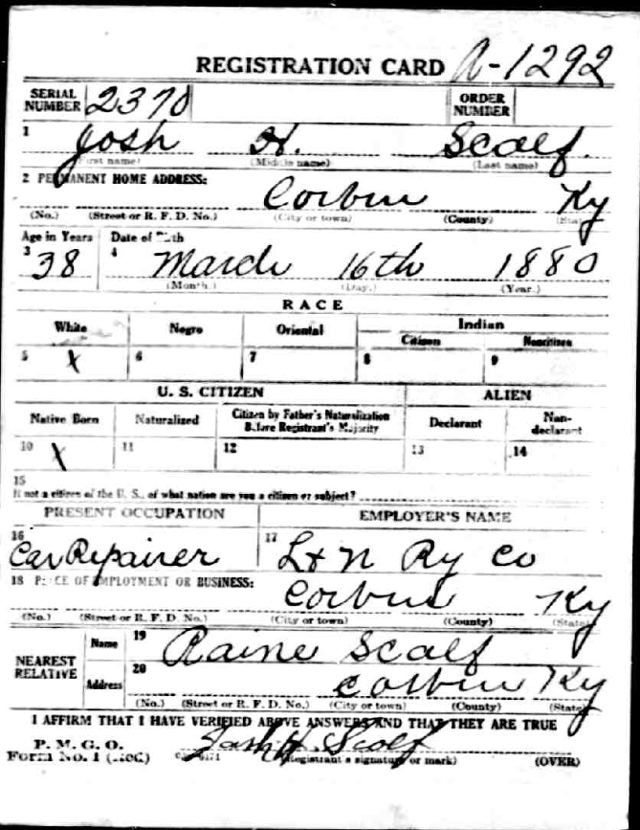 REGISTRATION CARD A-1292
SERIAL NUMBER 2370 ORDER NUMBER
1 Josh H. Scalf.
(First name) (Middle name) (Last name)
2 PERMANENT HOME ADDRESS: Corbin Ky
(No.) (Street or R. F. D. No.) (City or town) (County) (State)
Age in Years Date of Birth
3 38 4 March 16th 1880
(Month.) (Day.) (Year.)
RACE
White Negro Oriental Indian
Citizen Noncitizen
5 X 6 7 8 9
U. S. CITIZEN ALIEN
Native Born Naturalized Citizen by Father's Naturalization Before Registrant's Majority Declarant Non-declarant
10 X 11 12 13 14
15
If not a citizen of the U. S., of what nation are you a citizen or subject?
PRESENT OCCUPATION EMPLOYER'S NAME
16 Car Repairer 17 L & N Ry Co
18 PLACE OF EMPLOYMENT OR BUSINESS: Corbin Ky
(No.) (Street or R. F. D. No.) (City or town) (County) (State)
NEAREST RELATIVE Name 19 Raine Scalf
Address 20 Corbin Ky
(No.) (Street or R. F. D. No.) (City or town) (County) (State)
I AFFIRM THAT I HAVE VERIFIED ABOVE ANSWERS AND THAT THEY ARE TRUE
P. M. G. O.
Form No. 1 (Red) Josh H. Scalf
(Registrant's signature or mark) (OVER)